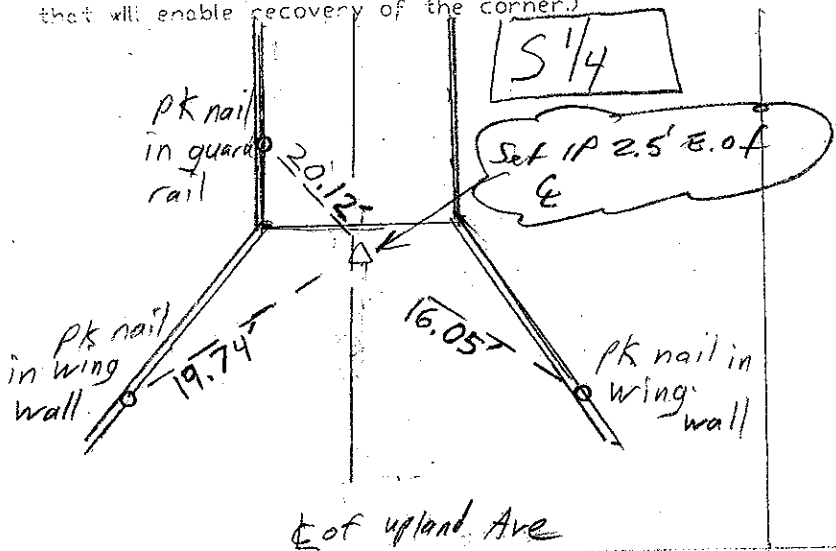 that will enable recovery of the corner.)
S 1/4
PK nail
in guard
rail
20.12'
Set IP 2.5' E. of
℄
PK nail
in wing
wall
19.74'
16.05'
PK nail in
wing
wall
℄ of upland Ave